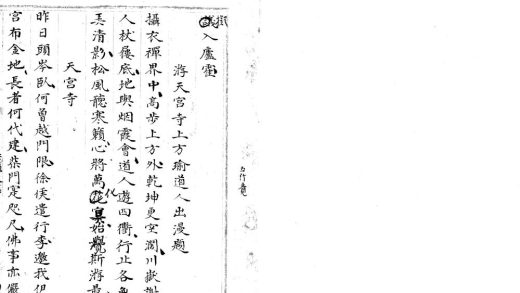 議入廬霍
游天宮寺上方瑜道人出漫題
攝衣禪界中高步上方外乾坤更空闊川嶽
人杖屨底地與烟霞會道人遊四衢行止各
美清影松風聽寒籟心將萬化冥始覺斯將
天宮寺
昨日頭岑臥何曾越門限徐侯遣行李邀我伊
宮布金地長者何代建柴門定咫尺佛事亦嚴